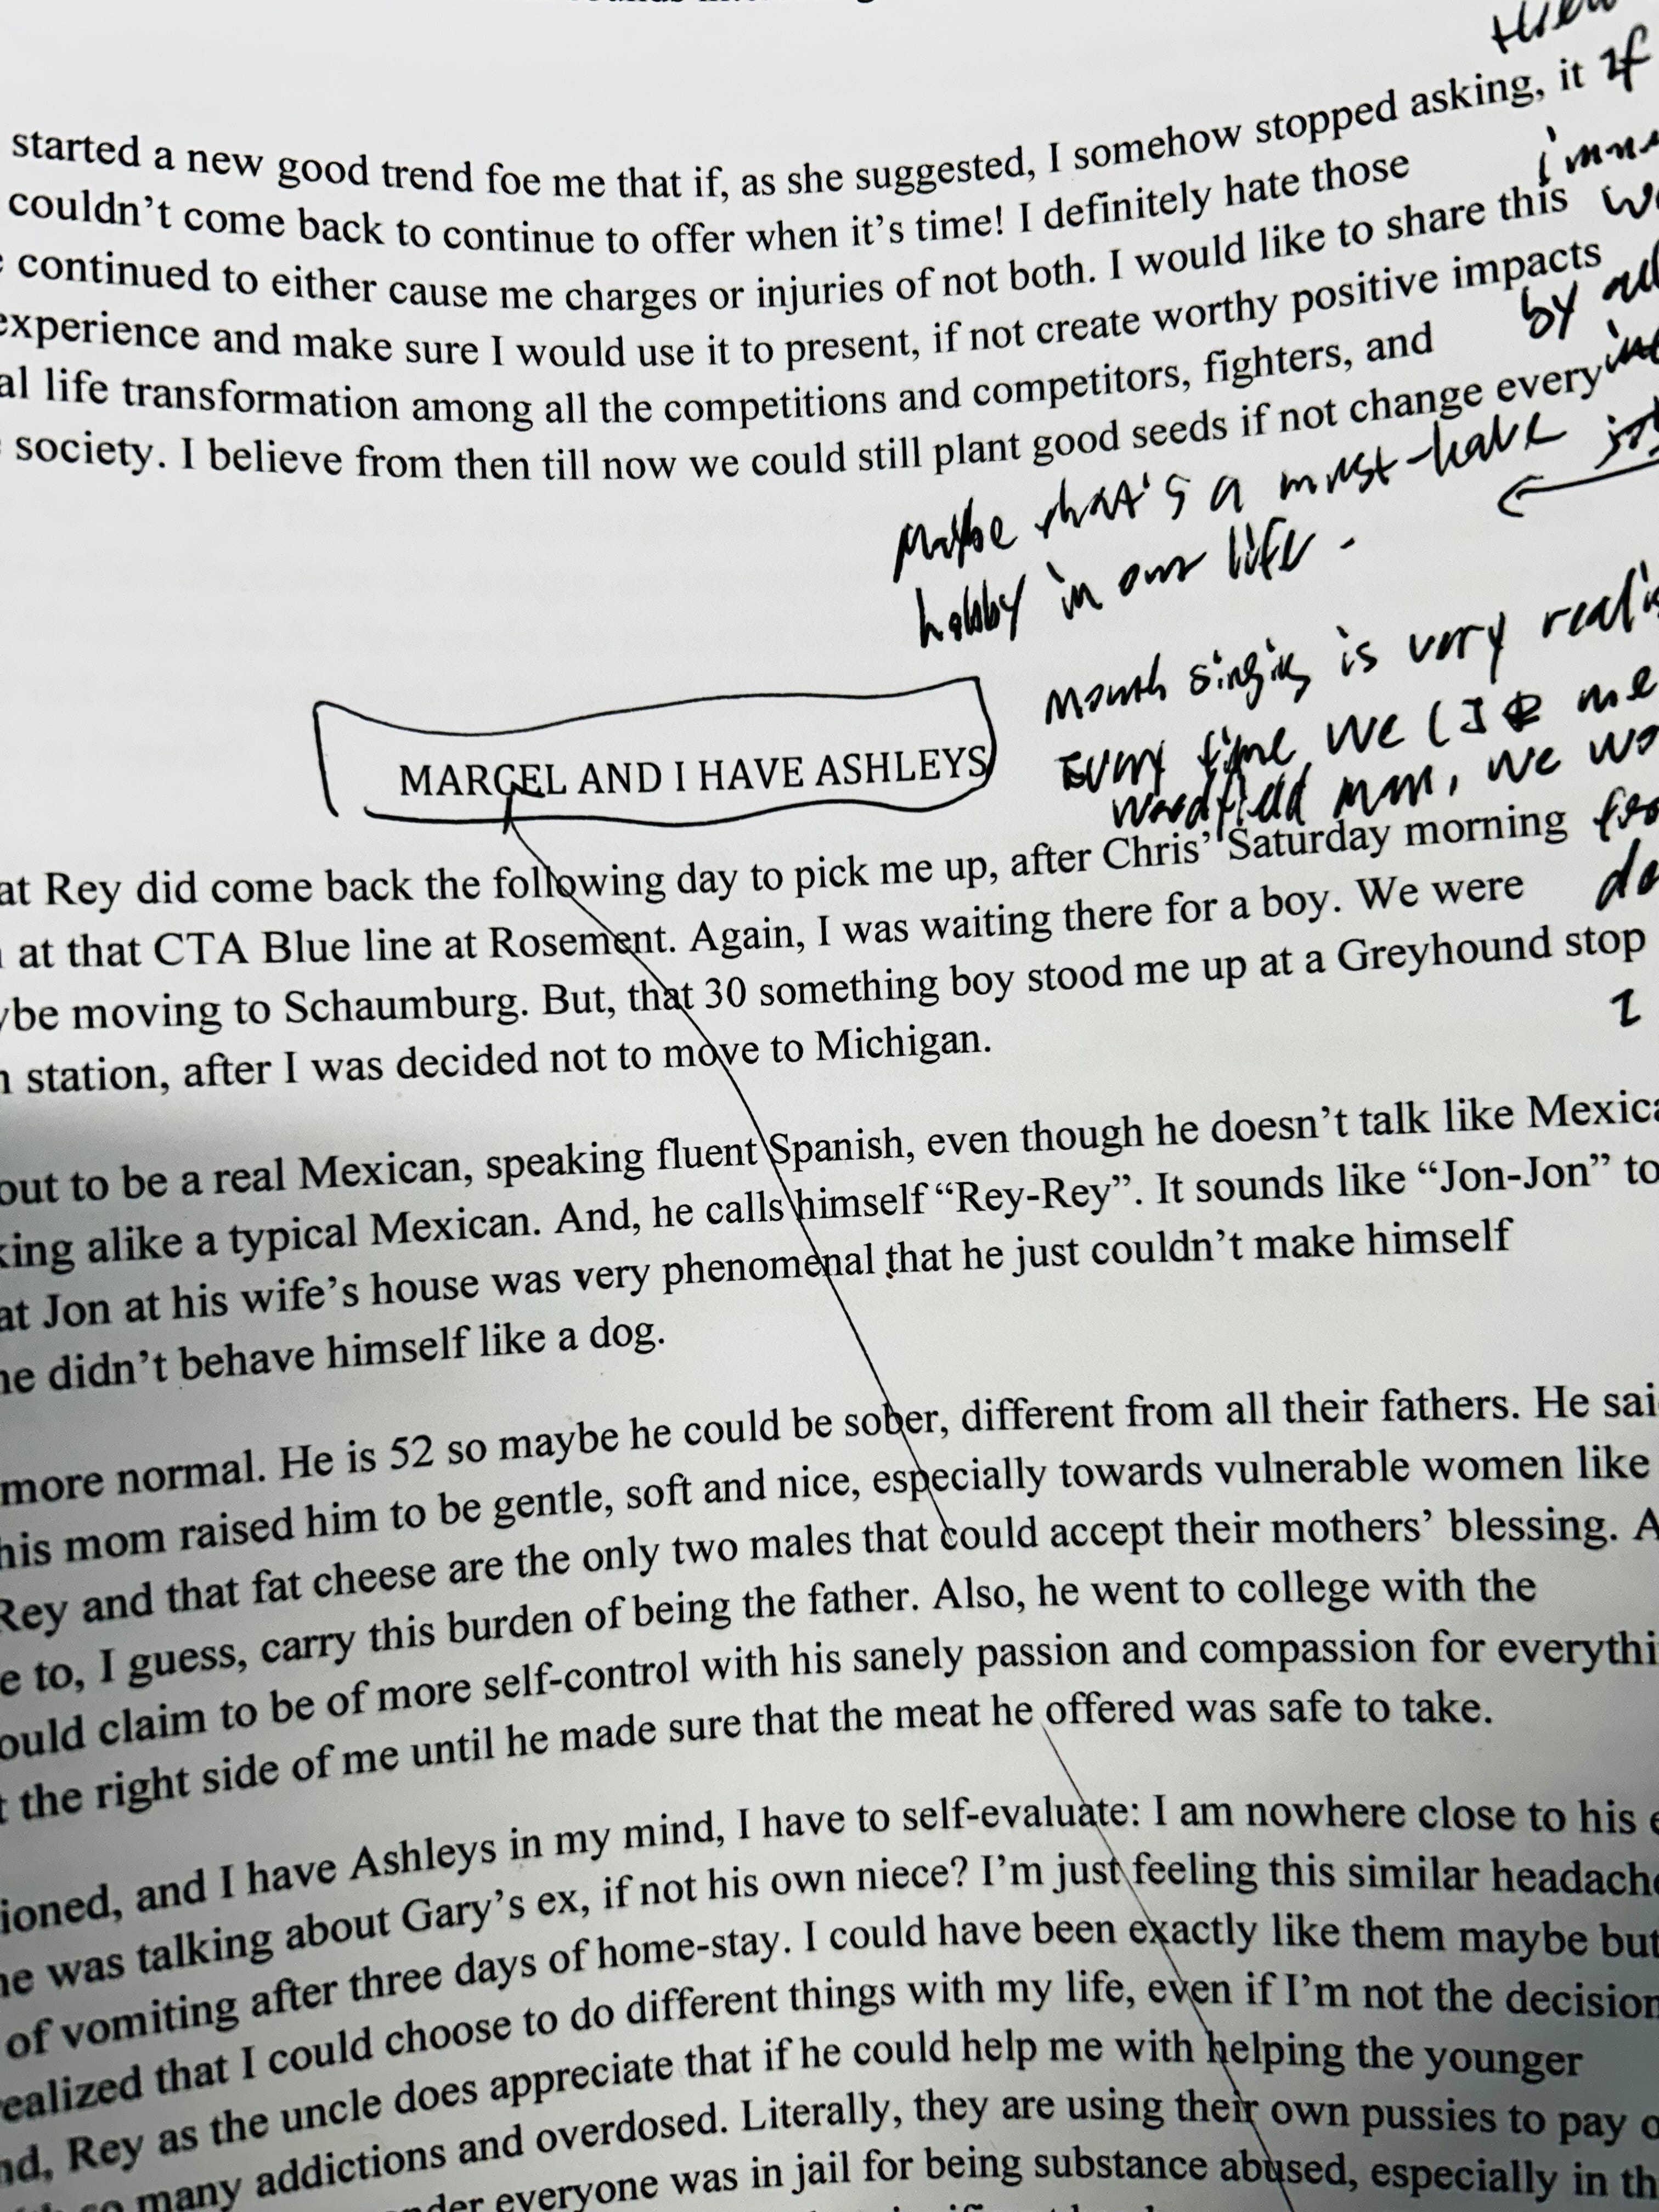 started a new good trend foe me that if, as she suggested, I somehow stopped asking, it If
couldn't come back to continue to offer when it's time! I definitely hate those
continued to either cause me charges or injuries of not both. I would like to share this
experience and make sure I would use it to present, if not create worthy positive impacts
al life transformation among all the competitions and competitors, fighters, and by
society. I believe from then till now we could still plant good seeds if not change every
Maybe that's a must-have
hobby in our life.
Mouth singing is very
Every time we me
Woodfield we
MARCEL AND I HAVE ASHLEYS
at Rey did come back the following day to pick me up, after Chris' Saturday morning
at that CTA Blue line at Rosement. Again, I was waiting there for a boy. We were
ybe moving to Schaumburg. But, that 30 something boy stood me up at a Greyhound stop
station, after I was decided not to move to Michigan.
out to be a real Mexican, speaking fluent Spanish, even though he doesn't talk like Mexica
king alike a typical Mexican. And, he calls himself “Rey-Rey”. It sounds like “Jon-Jon” to
at Jon at his wife's house was very phenomenal that he just couldn't make himself
he didn't behave himself like a dog.
more normal. He is 52 so maybe he could be sober, different from all their fathers. He sai
his mom raised him to be gentle, soft and nice, especially towards vulnerable women like
Rey and that fat cheese are the only two males that could accept their mothers' blessing. A
e to, I guess, carry this burden of being the father. Also, he went to college with the
ould claim to be of more self-control with his sanely passion and compassion for everythi
t the right side of me until he made sure that the meat he offered was safe to take.
ioned, and I have Ashleys in my mind, I have to self-evaluate: I am nowhere close to his
he was talking about Gary's ex, if not his own niece? I'm just feeling this similar headache
of vomiting after three days of home-stay. I could have been exactly like them maybe but
ealized that I could choose to do different things with my life, even if I'm not the decision
nd, Rey as the uncle does appreciate that if he could help me with helping the younger
so many addictions and overdosed. Literally, they are using their own pussies to pay
der everyone was in jail for being substance abused, especially in th